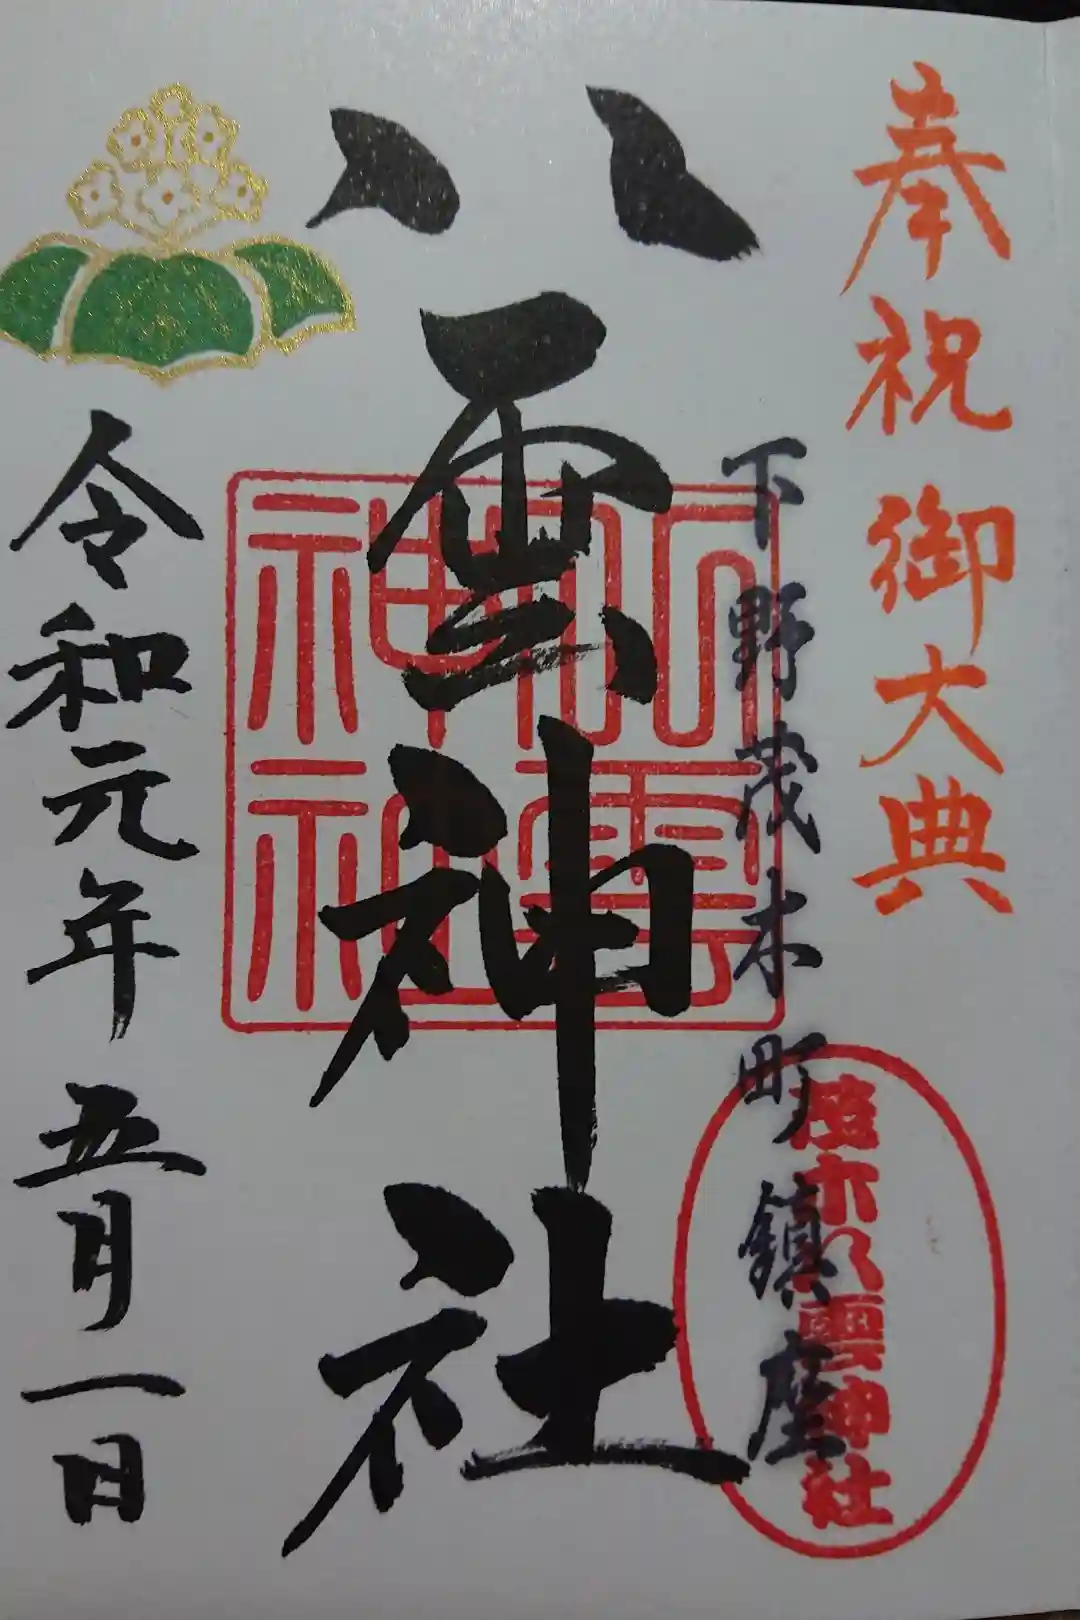 奉祝 御大典
下野茂木町鎮座
茂木八雲神社
八雲神社
八雲
神社
令和元年 五月一日